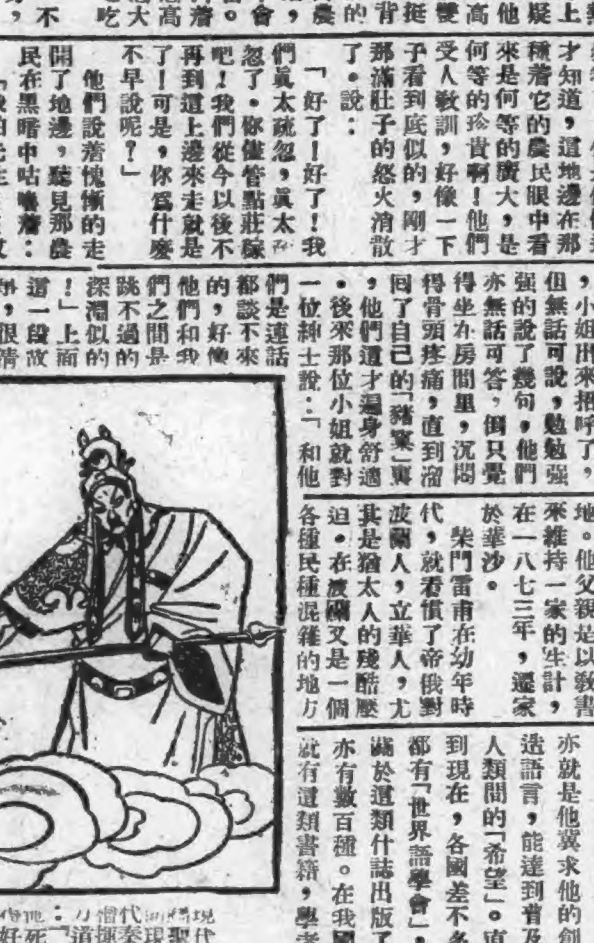 才知道，這地邊在那
種着它的農民眼中看
來是何等的廣大，是
何等的珍貴啊！他們
受人敎訓，好像一下
子看到底似的，剛才
那滿肚子的怒火消散
了。說：
「好了！好了！我
們眞太疏忽，眞太
忽了。你儘管點莊稼
吧！我們從今以後不
再到這上邊來走就是
了！可是，你爲什麽
不早說呢？」
他們說着愧慚的走
開了地邊，聽見那農
民在黑暗中咕噥着：
，小姐出來招呼了，
但無話可說，勉勉强
强的說了幾句，他們
亦無話可答，倒只覺
得坐在房間里，沉悶
得骨頭疼痛，直到溜
囘了自己的「豬窠」裏
，他們這才遍身舒適
。後來那位小姐就對
一位紳士說：「和他
們是連話
都談不來
的，好像
他們和我
們之間是
跳不過的
深淵似的
！」上面
這一段故
，很淸
地。他父親是以敎書
來維持一家的生計，
在一八七三年，遷家
於華沙。
柴門雷甫在幼年時
代，就看慣了帝俄對
波蘭人，立華人，尤
其是猶太人的殘酷壓
迫。在波蘭又是一個
各種民種混雜的地方
亦就是他冀求他的創
造語言，能達到普及
人類間的「希望」。直
到現在，各國差不多
都有「世界語學會」，
關於這類什誌出版了
亦有數百種。在我國
就有這類書籍，學者